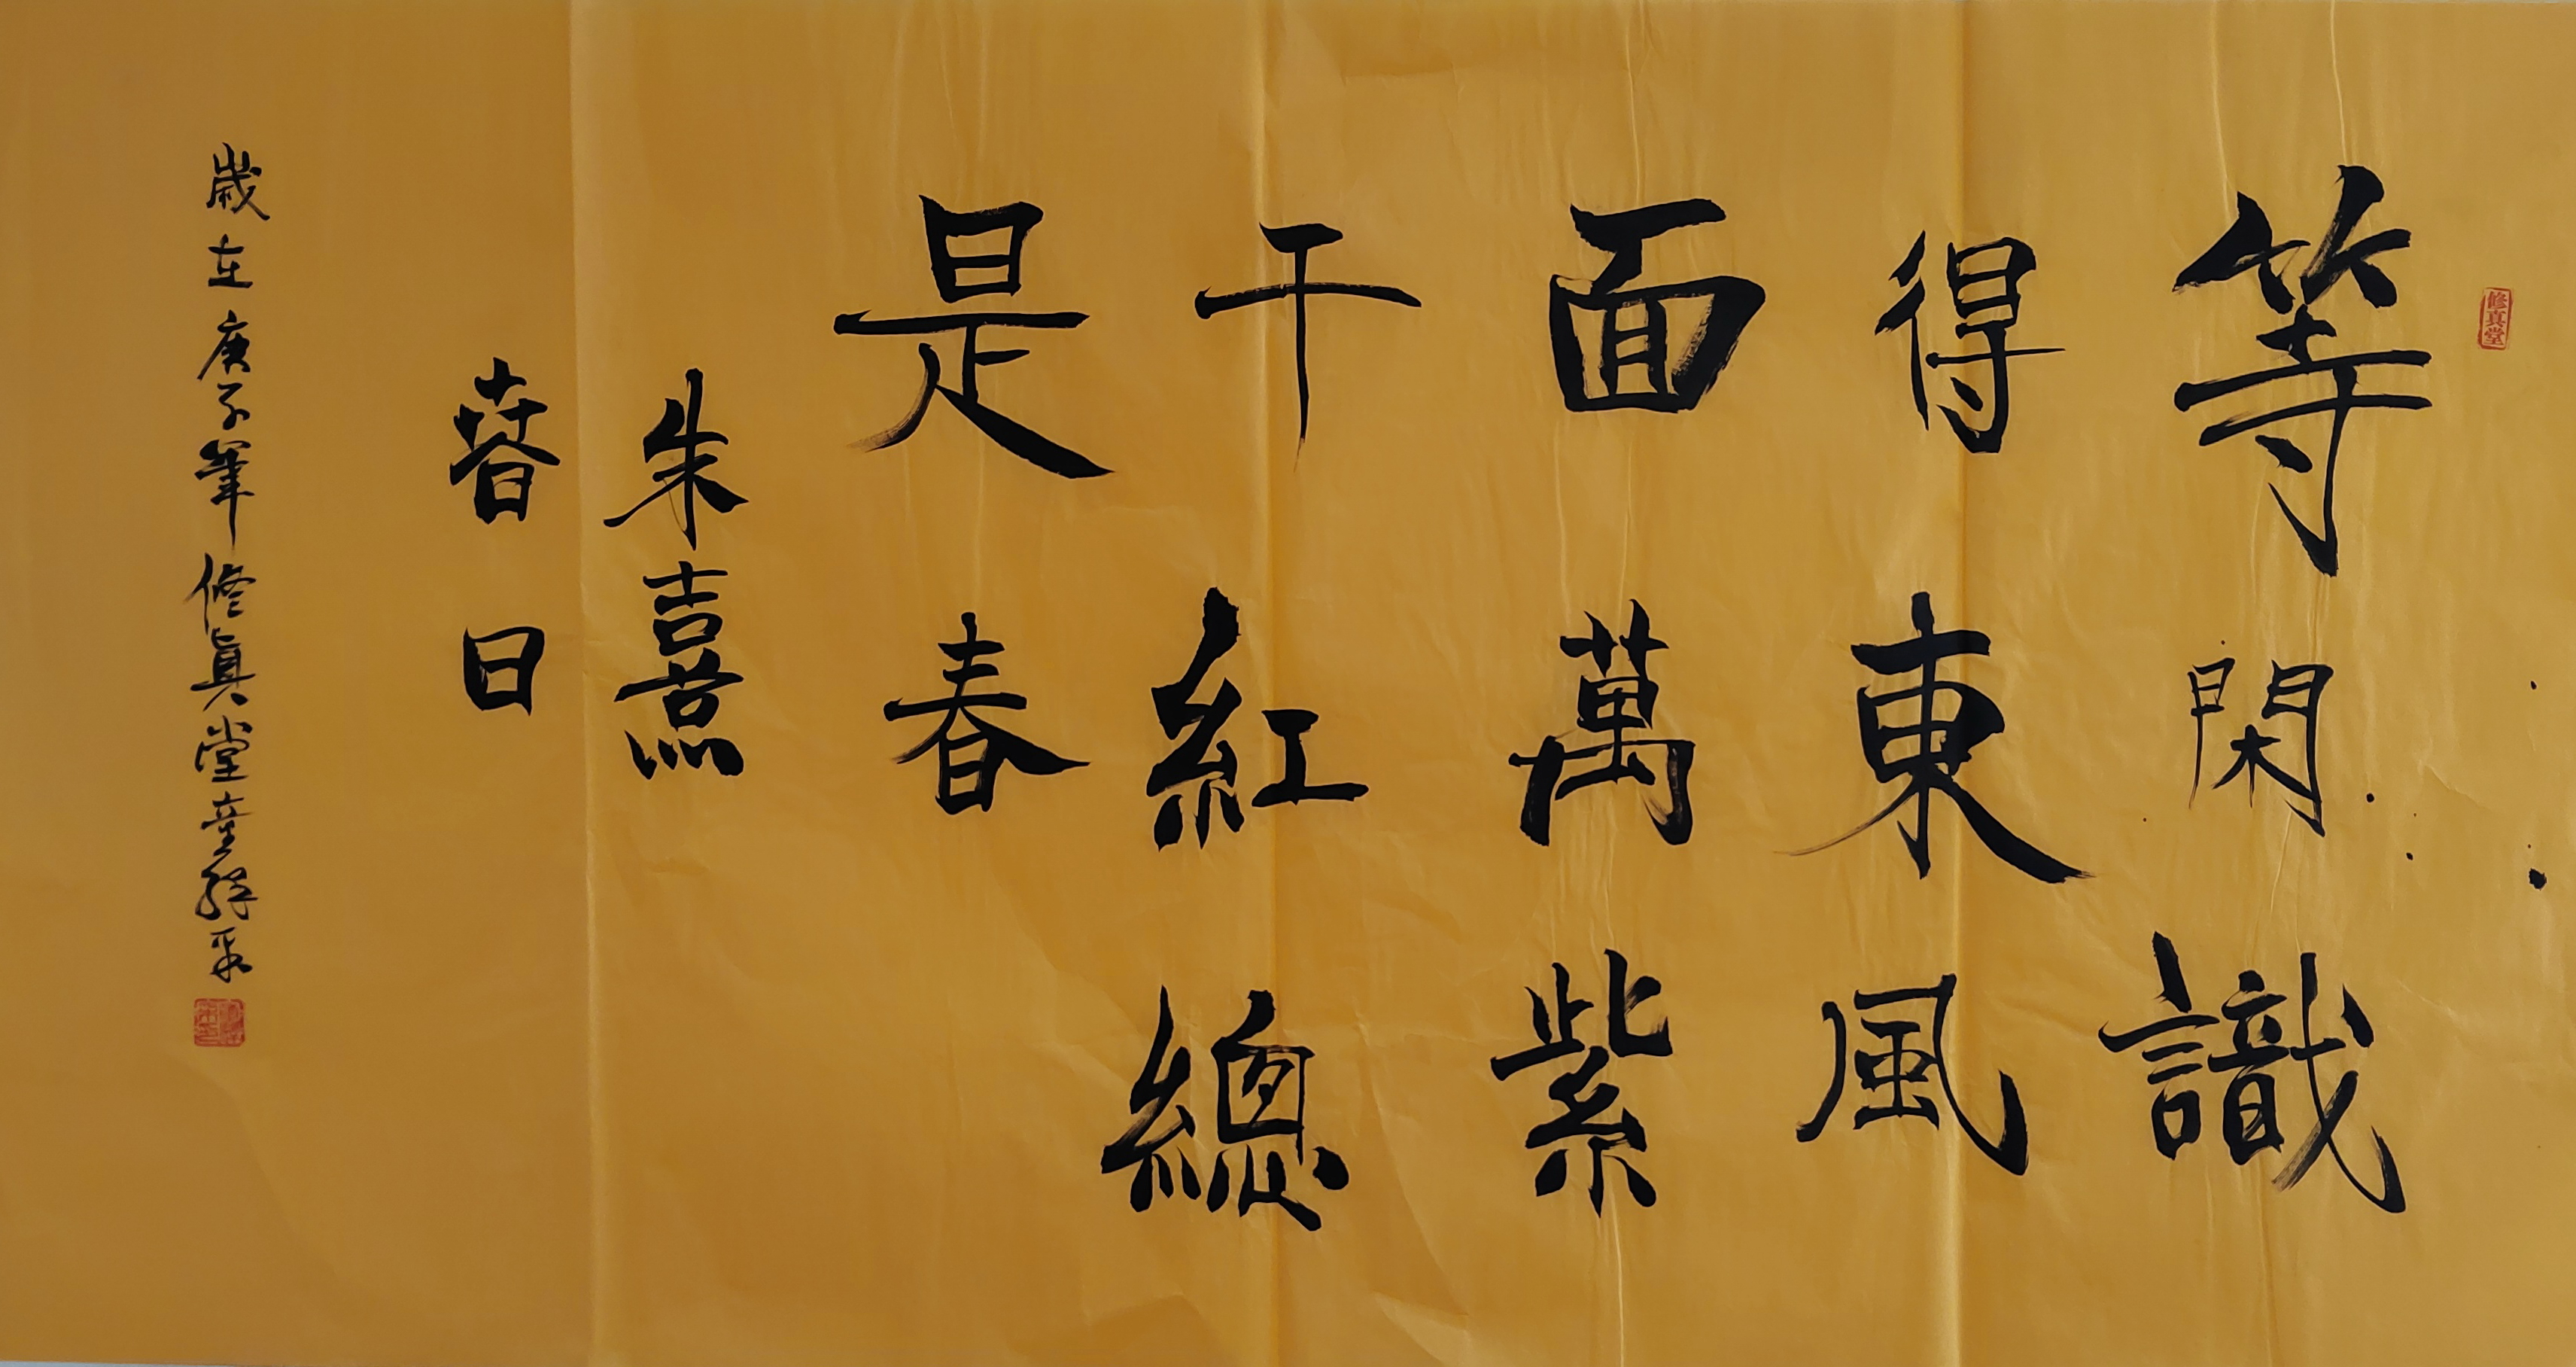 修真堂
等閑識
得東風
面萬紫
千紅總
是春
朱熹
春日
歲在庚子筆修真堂童